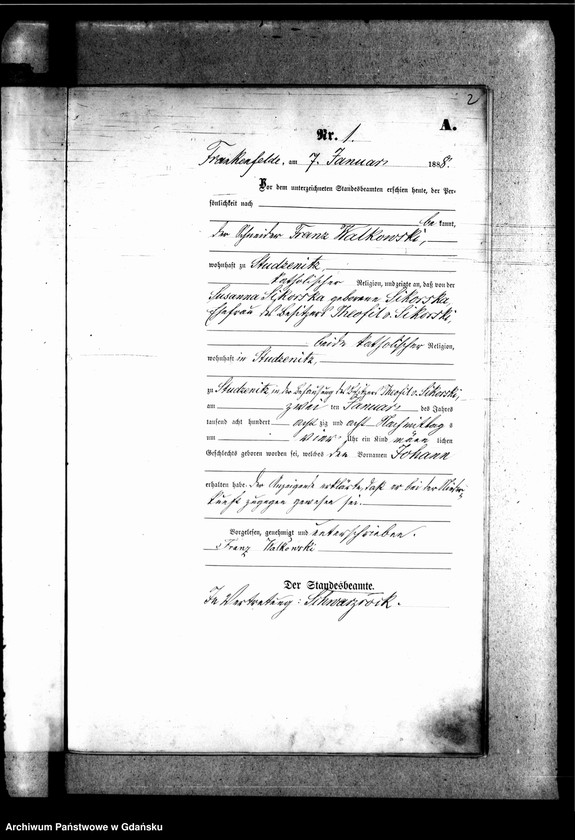 2
A.
Nr. 1.
Frankenfelde, am 7. Januar 1888.
Vor dem unterzeichneten Standesbeamten erschien heute, der Per-
sönlichkeit nach
be kannt,
der Schneider Franz Walkowski,
wohnhaft zu Studzenitz,
katholischer Religion, und zeigte an, daß von der
Susanna Sikorska geborene Sikorska,
Ehefrau des Besitzers Theofil v. Sikorski,
beide katholischer Religion,
wohnhaft in Studzenitz,
zu Studzenitz in der Behausung des Besitzers Theofil v. Sikorski,
am zwei ten Januar des Jahres
tausend acht hundert acht zig und acht Nachmittag s
um vier Uhr ein Kind männ lichen
Geschlechts geboren worden sei, welches den Vornamen Johann
erhalten habe. Der Anzeigende erklärte, daß er bei der Nieder-
kunft zugegen gewesen sei.
Vorgelesen, genehmigt und unterschrieben.
Franz Walkowski
Der Standesbeamte.
In Vertretung: Schwarzrock.
Archiwum Państwowe w Gdańsku